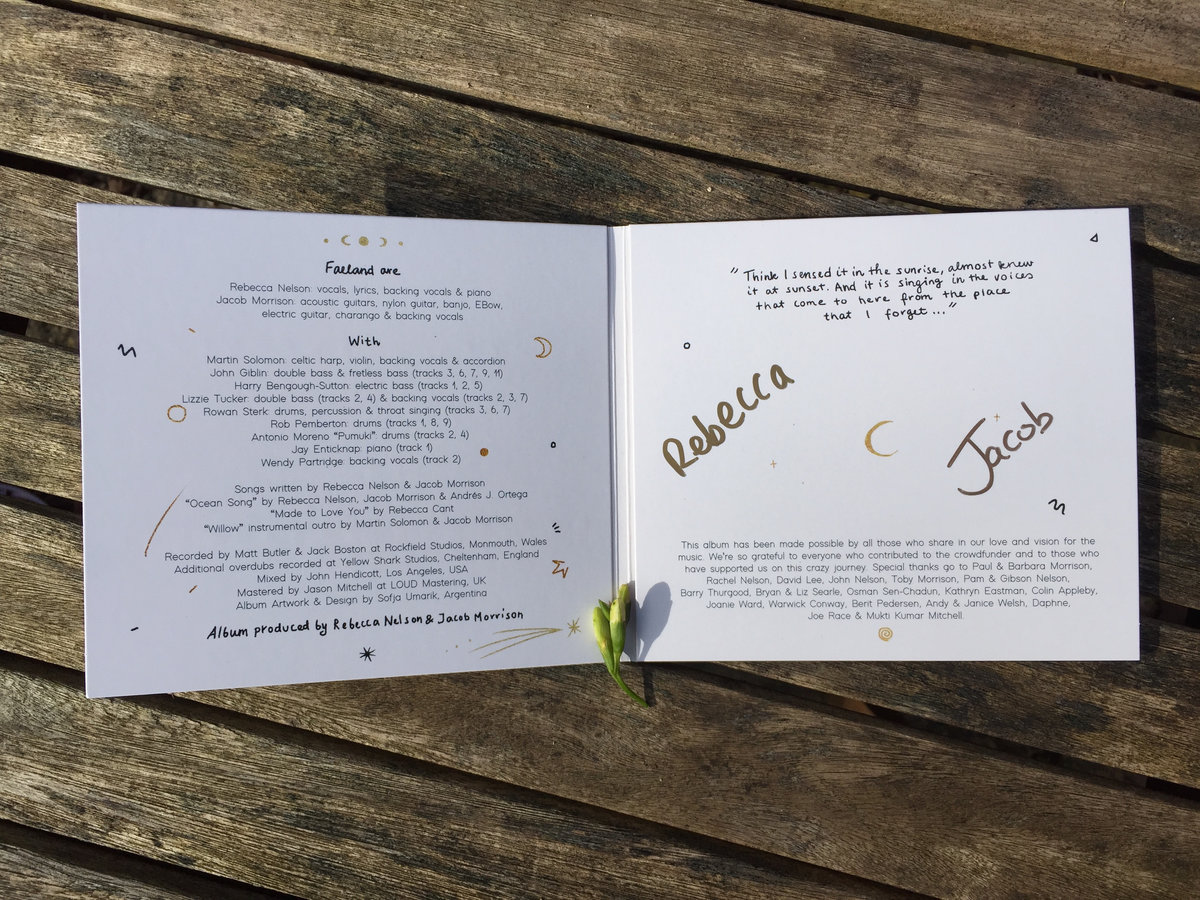 Faeland are
Rebecca Nelson: vocals, lyrics, backing vocals & piano
Jacob Morrison: acoustic guitars, nylon guitar, banjo, EBow,
electric guitar, charango & backing vocals
With
Martin Solomon: celtic harp, violin, backing vocals & accordion
John Giblin: double bass & fretless bass (tracks 3, 6, 7, 9, 11)
Harry Bengough-Sutton: electric bass (tracks 1, 2, 5)
Lizzie Tucker: double bass (tracks 2, 4) & backing vocals (tracks 2, 3, 7)
Rowan Sterk: drums, percussion & throat singing (tracks 3, 6, 7)
Rob Pemberton: drums (tracks 1, 8, 9)
Antonio Moreno "Pumuki": drums (tracks 2, 4)
Jay Enticknap: piano (track 1)
Wendy Partridge: backing vocals (track 2)
Songs written by Rebecca Nelson & Jacob Morrison
"Ocean Song" by Rebecca Nelson, Jacob Morrison & Andrés J. Ortega
"Made to Love You" by Rebecca Cant
"Willow" instrumental outro by Martin Solomon & Jacob Morrison
Recorded by Matt Butler & Jack Boston at Rockfield Studios, Monmouth, Wales
Additional overdubs recorded at Yellow Shark Studios, Cheltenham, England
Mixed by John Hendicott, Los Angeles, USA
Mastered by Jason Mitchell at LOUD Mastering, UK
Album Artwork & Design by Sofja Umarik, Argentina
Album produced by Rebecca Nelson & Jacob Morrison
"Think I sensed it in the sunrise, almost knew
it at sunset. And it is singing in the voices
that come to here from the place
that I forget..."
Rebecca
Jacob
This album has been made possible by all those who share in our love and vision for the
music. We're so grateful to everyone who contributed to the crowdfunder and to those who
have supported us on this crazy journey. Special thanks go to Paul & Barbara Morrison,
Rachel Nelson, David Lee, John Nelson, Toby Morrison, Pam & Gibson Nelson,
Barry Thurgood, Bryan & Liz Searle, Osman Sen-Chadun, Kathryn Eastman, Colin Appleby,
Joanie Ward, Warwick Conway, Berit Pedersen, Andy & Janice Welsh, Daphne,
Joe Race & Mukti Kumar Mitchell.